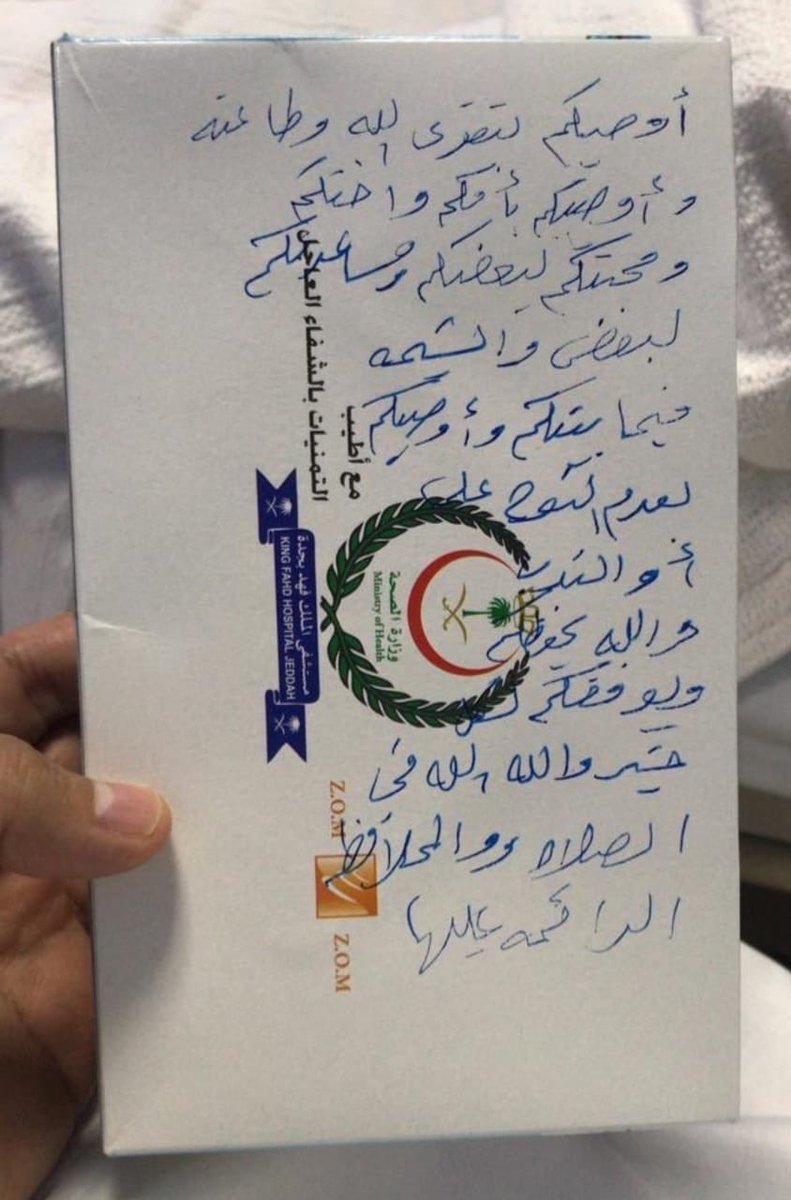 أوصيكم بتقوى الله وطاعته
وأوصيكم بأمكم واختكم
ومحبتكم لبعضكم ومساعدتكم
لبعض
فيما بينكم وأوصيكم
بعدم النوح على
أو
والله يحفظكم
ويوفقكم لكل
خير والله الله في
الصلاه والمحافظة
الدائمه عليها
مع أطيب
التمنيات بالشفاء العاجل
مستشفى الملك فهد بجدة
KING FAHD HOSPITAL JEDDAH
وزارة الصحة
Ministry of Health
Z.O.M
Z.O.M